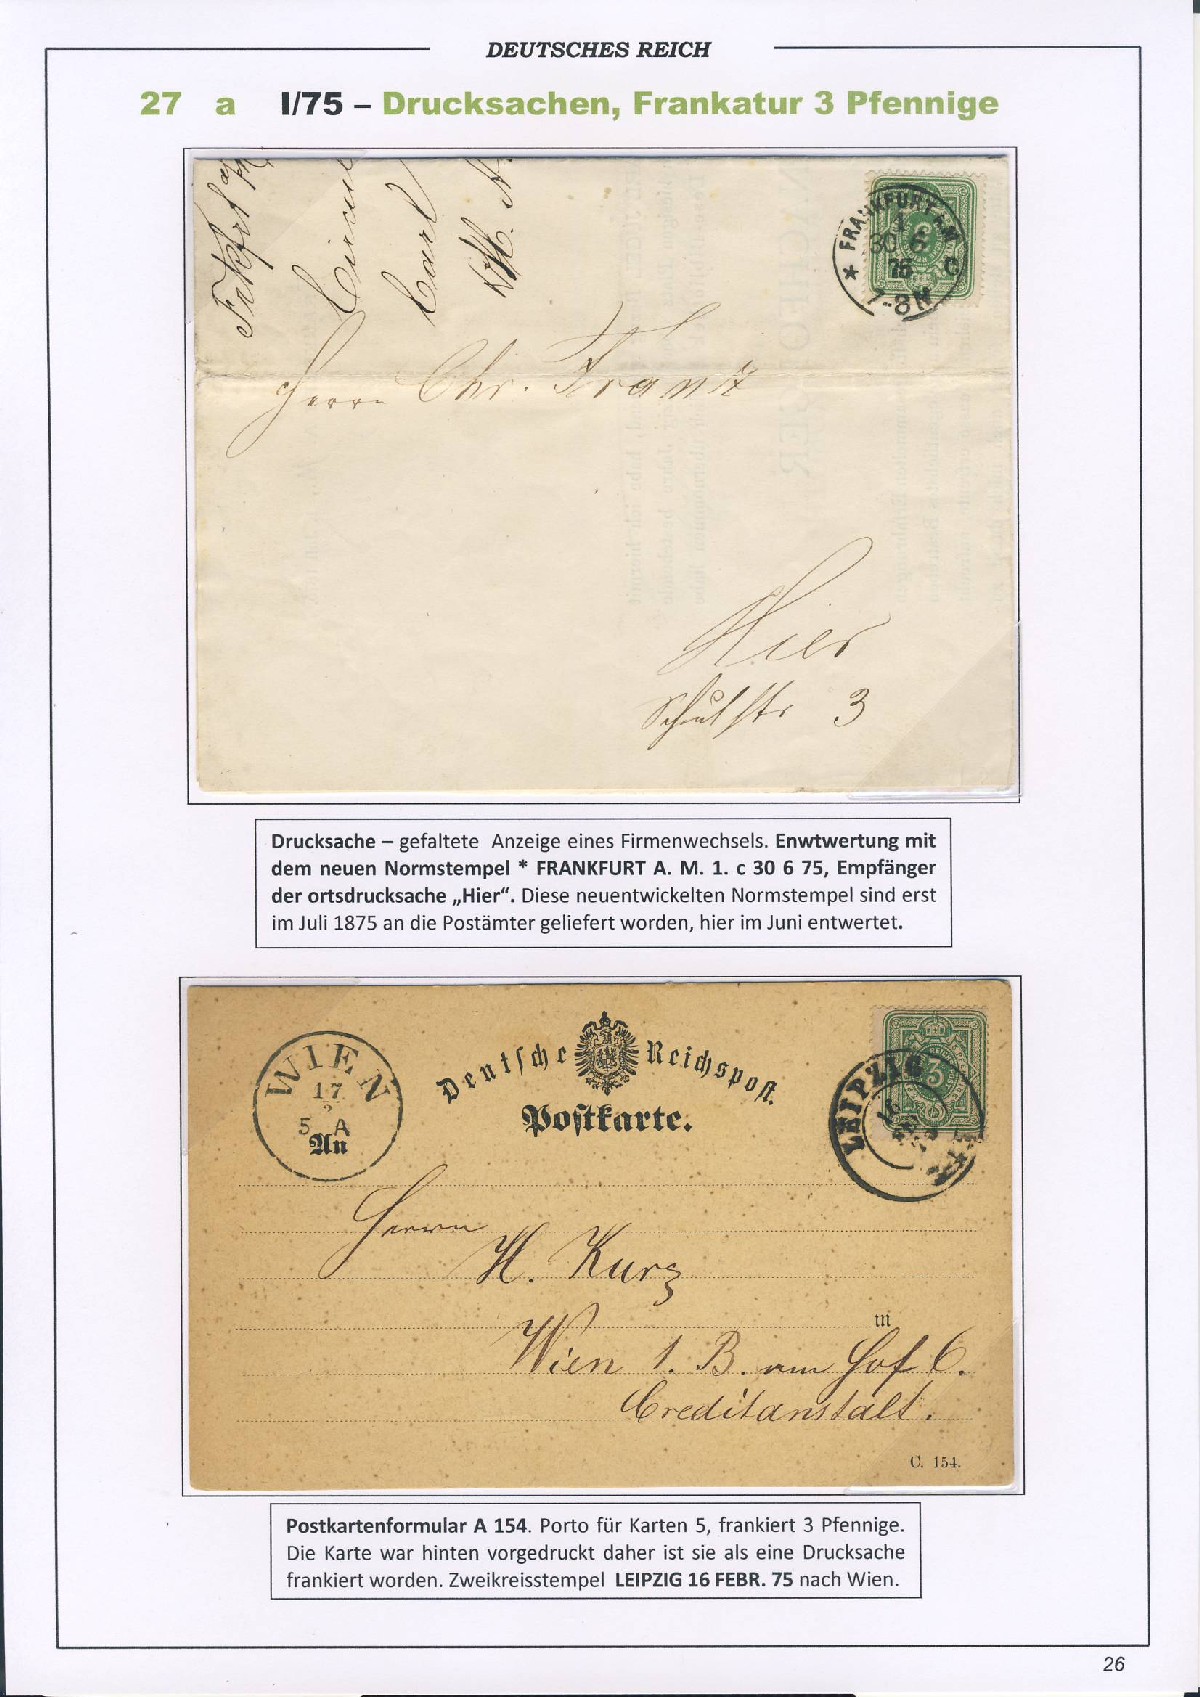 DEUTSCHES REICH
27 a I/75 – Drucksachen, Frankatur 3 Pfennige
Frkfrt a/M
Carl
FRANKFURT A.M.
1.
30 6
75 C
7-8 N
Herrn Chr. Frantz
Hier
Schulstr 3
Drucksache – gefaltete Anzeige eines Firmenwechsels. Enwtwertung mit
dem neuen Normstempel * FRANKFURT A. M. 1. c 30 6 75, Empfänger
der ortsdrucksache „Hier“. Diese neuentwickelten Normstempel sind erst
im Juli 1875 an die Postämter geliefert worden, hier im Juni entwertet.
WIEN
17
2
5 A
An
Deutsche Reichspost.
Postkarte.
3
LEIPZIG
16
Herrn
H. Kurz
in
Wien 1. B. am Hof 6.
Creditanstalt.
C. 154.
Postkartenformular A 154. Porto für Karten 5, frankiert 3 Pfennige.
Die Karte war hinten vorgedruckt daher ist sie als eine Drucksache
frankiert worden. Zweikreisstempel LEIPZIG 16 FEBR. 75 nach Wien.
26